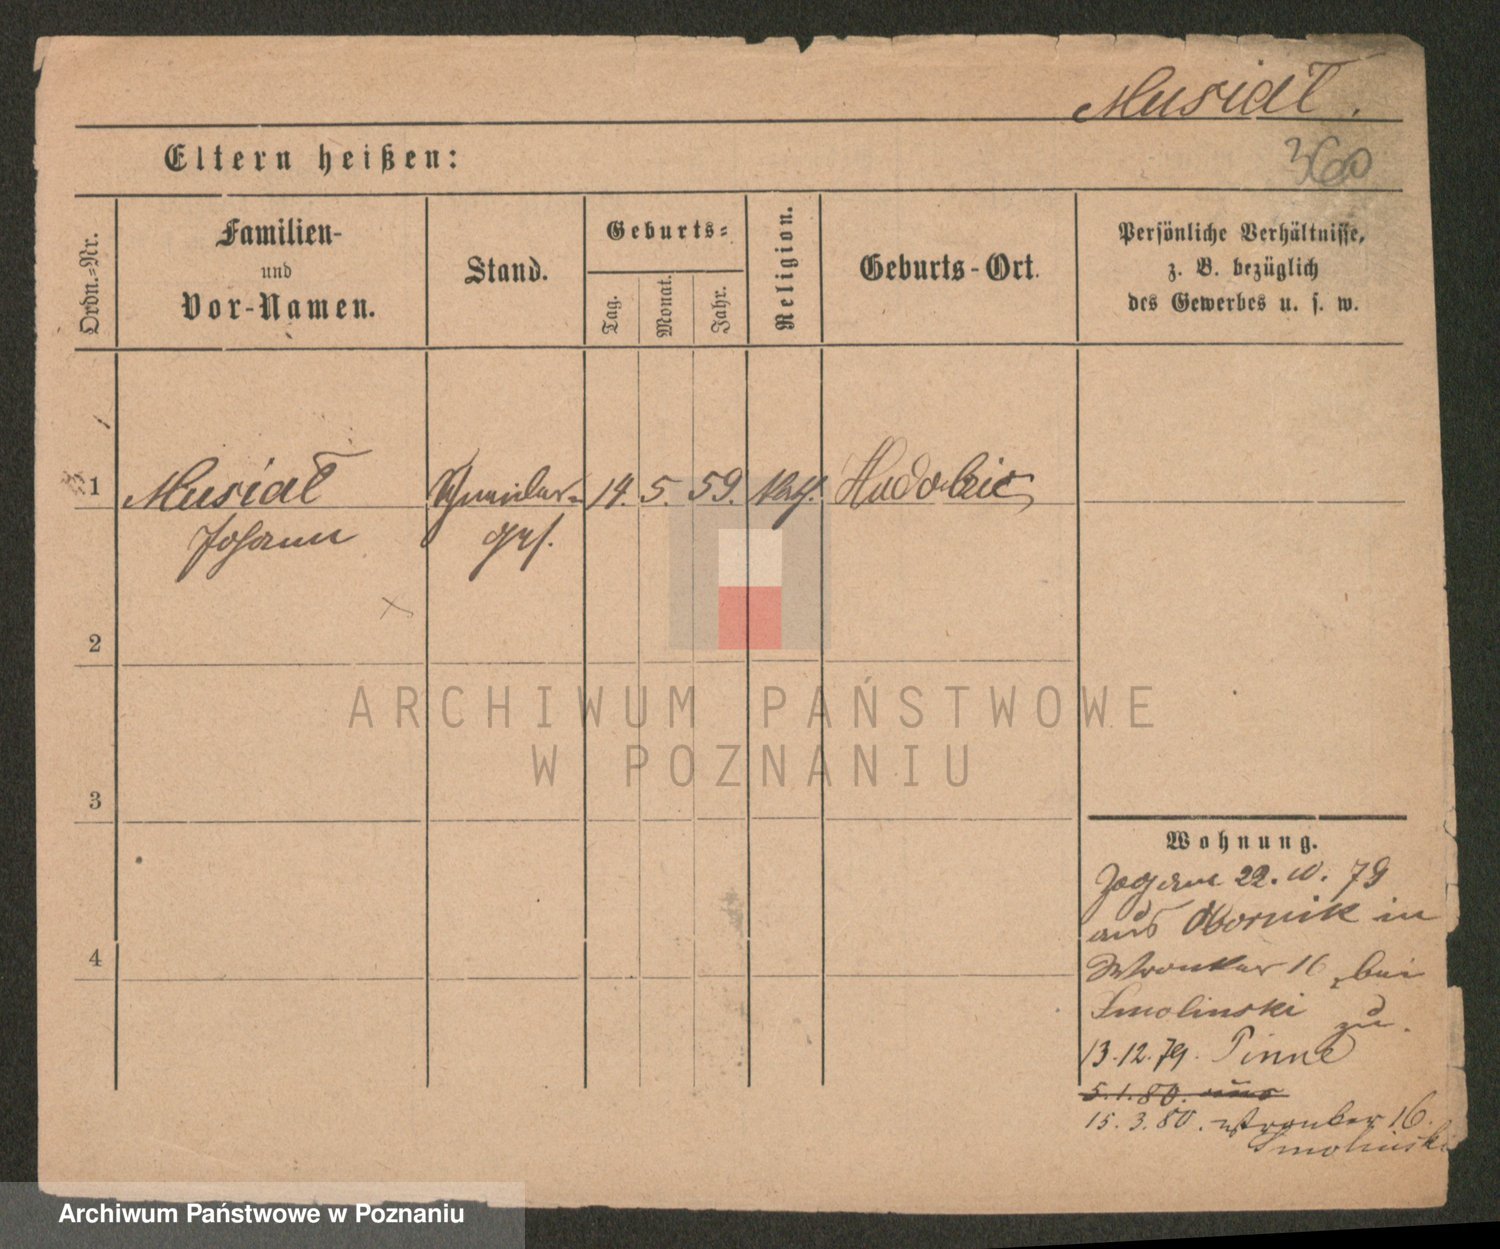 Musiał.
360
Eltern heißen:
Ordn.=Nr.
Familien-
und
Vor-Namen.
Stand.
Geburts=
Tag.
Monat.
Jahr.
Religion.
Geburts-Ort.
Persönliche Verhältnisse,
z. B. bezüglich
des Gewerbes u. s. w.
1 Musiał 14. 5. 59. kath.
Johann ges.
2
3
4
ARCHIWUM PAŃSTWOWE
W POZNANIU
Wohnung.
22. 10. 79
aus Obornik in
Wronker 16 bei
Smolinski zu.
13.12.79. Pinne
5.1.80. aus
15.3.80. Wronker 16.
Smolinski
Archiwum Państwowe w Poznaniu